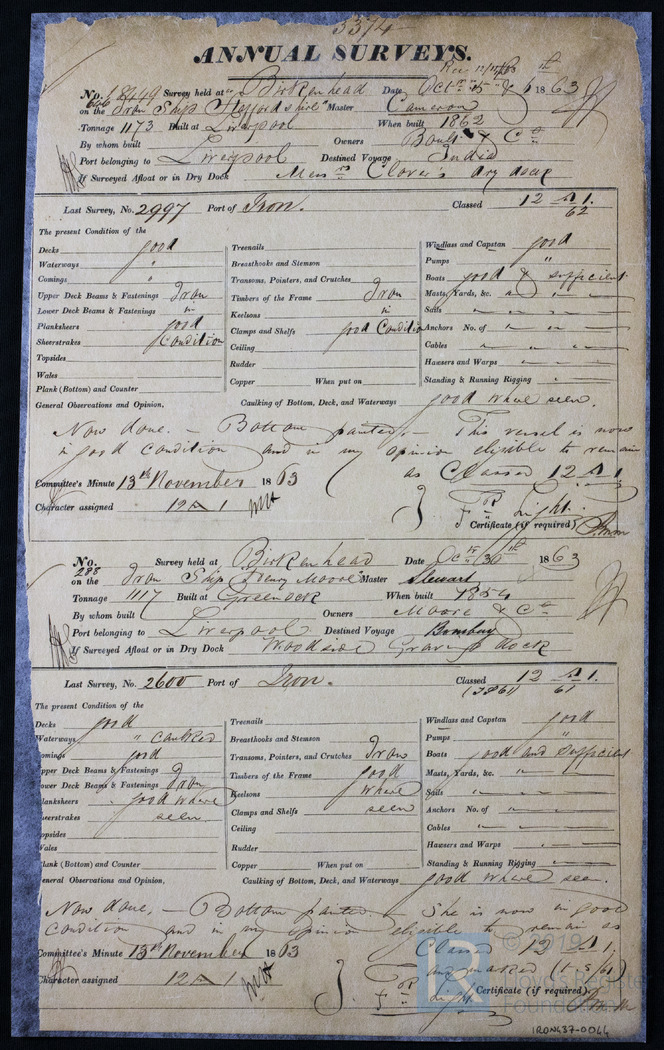 5374
ANNUAL SURVEYS.
No. 18449 Survey held at Birkenhead Date Oct 1863
666 on the Iron Ship "Staffordshire" Master Cameron
Tonnage 1173 Built at Liverpool When built 1862
By whom built Owners Boult & Co
Port belonging to Liverpool Destined Voyage India
If Surveyed Afloat or in Dry Dock Messrs Clover's dry dock
Last Survey, No. 2997 Port of Iron. Classed 12 A 1.
62
The present Condition of the
Decks good Treenails Windlass and Capstan good
Waterways " Breasthooks and Stemson Pumps "
Comings " Transoms, Pointers, and Crutches Boats good & sufficient
Upper Deck Beams & Fastenings Iron Timbers of the Frame Iron Masts, Yards, &c. "
Lower Deck Beams & Fastenings " Keelsons " Sails "
Planksheers good Clamps and Shelfs good Condition Anchors No. of "
Sheerstrakes Condition Ceiling Cables "
Topsides Rudder Hawsers and Warps "
Wales Copper When put on Standing & Running Rigging "
Plank (Bottom) and Counter
General Observations and Opinion, Caulking of Bottom, Deck, and Waterways good where seen.
Now done. - Bottom painted. - This vessel is now
in good condition and in my opinion eligible to remain
as Classed 12 A 1.
Committee's Minute 13th November 1863
Character assigned 12 A 1
Light.
Certificate (if required)
No. 288 Survey held at Birkenhead Date Oct 30th 1863
on the Iron Ship Henry Moore Master Stewart
Tonnage 1117 Built at Greenock When built 1854
By whom built Owners Moore & Co
Port belonging to Liverpool Destined Voyage Bombay
If Surveyed Afloat or in Dry Dock Woodside Graving dock
Last Survey, No. 2600 Port of Iron. Classed 12 A 1.
61
The present Condition of the
Decks good Treenails Windlass and Capstan good
Waterways " caulked Breasthooks and Stemson Pumps "
omings good Transoms, Pointers, and Crutches Iron Boats good and sufficient
pper Deck Beams & Fastenings Iron Timbers of the Frame good Masts, Yards, &c. "
ower Deck Beams & Fastenings Iron Keelsons where Sails "
lanksheers good where Clamps and Shelfs seen Anchors No. of "
eerstrakes seen Ceiling Cables "
opsides Rudder Hawsers and Warps "
ales Copper When put on Standing & Running Rigging "
lank (Bottom) and Counter
eneral Observations and Opinion, Caulking of Bottom, Deck, and Waterways good where seen.
Now done. - Bottom painted - She is now in good
condition and in my opinion eligible to remain as
Classed 12 A 1.
Committee's Minute 13th November 1863
and marked
Character assigned 12 A 1
Light
Certificate (if required)
© 2019
Lloyd's Register
Foundation
IRON437-0064